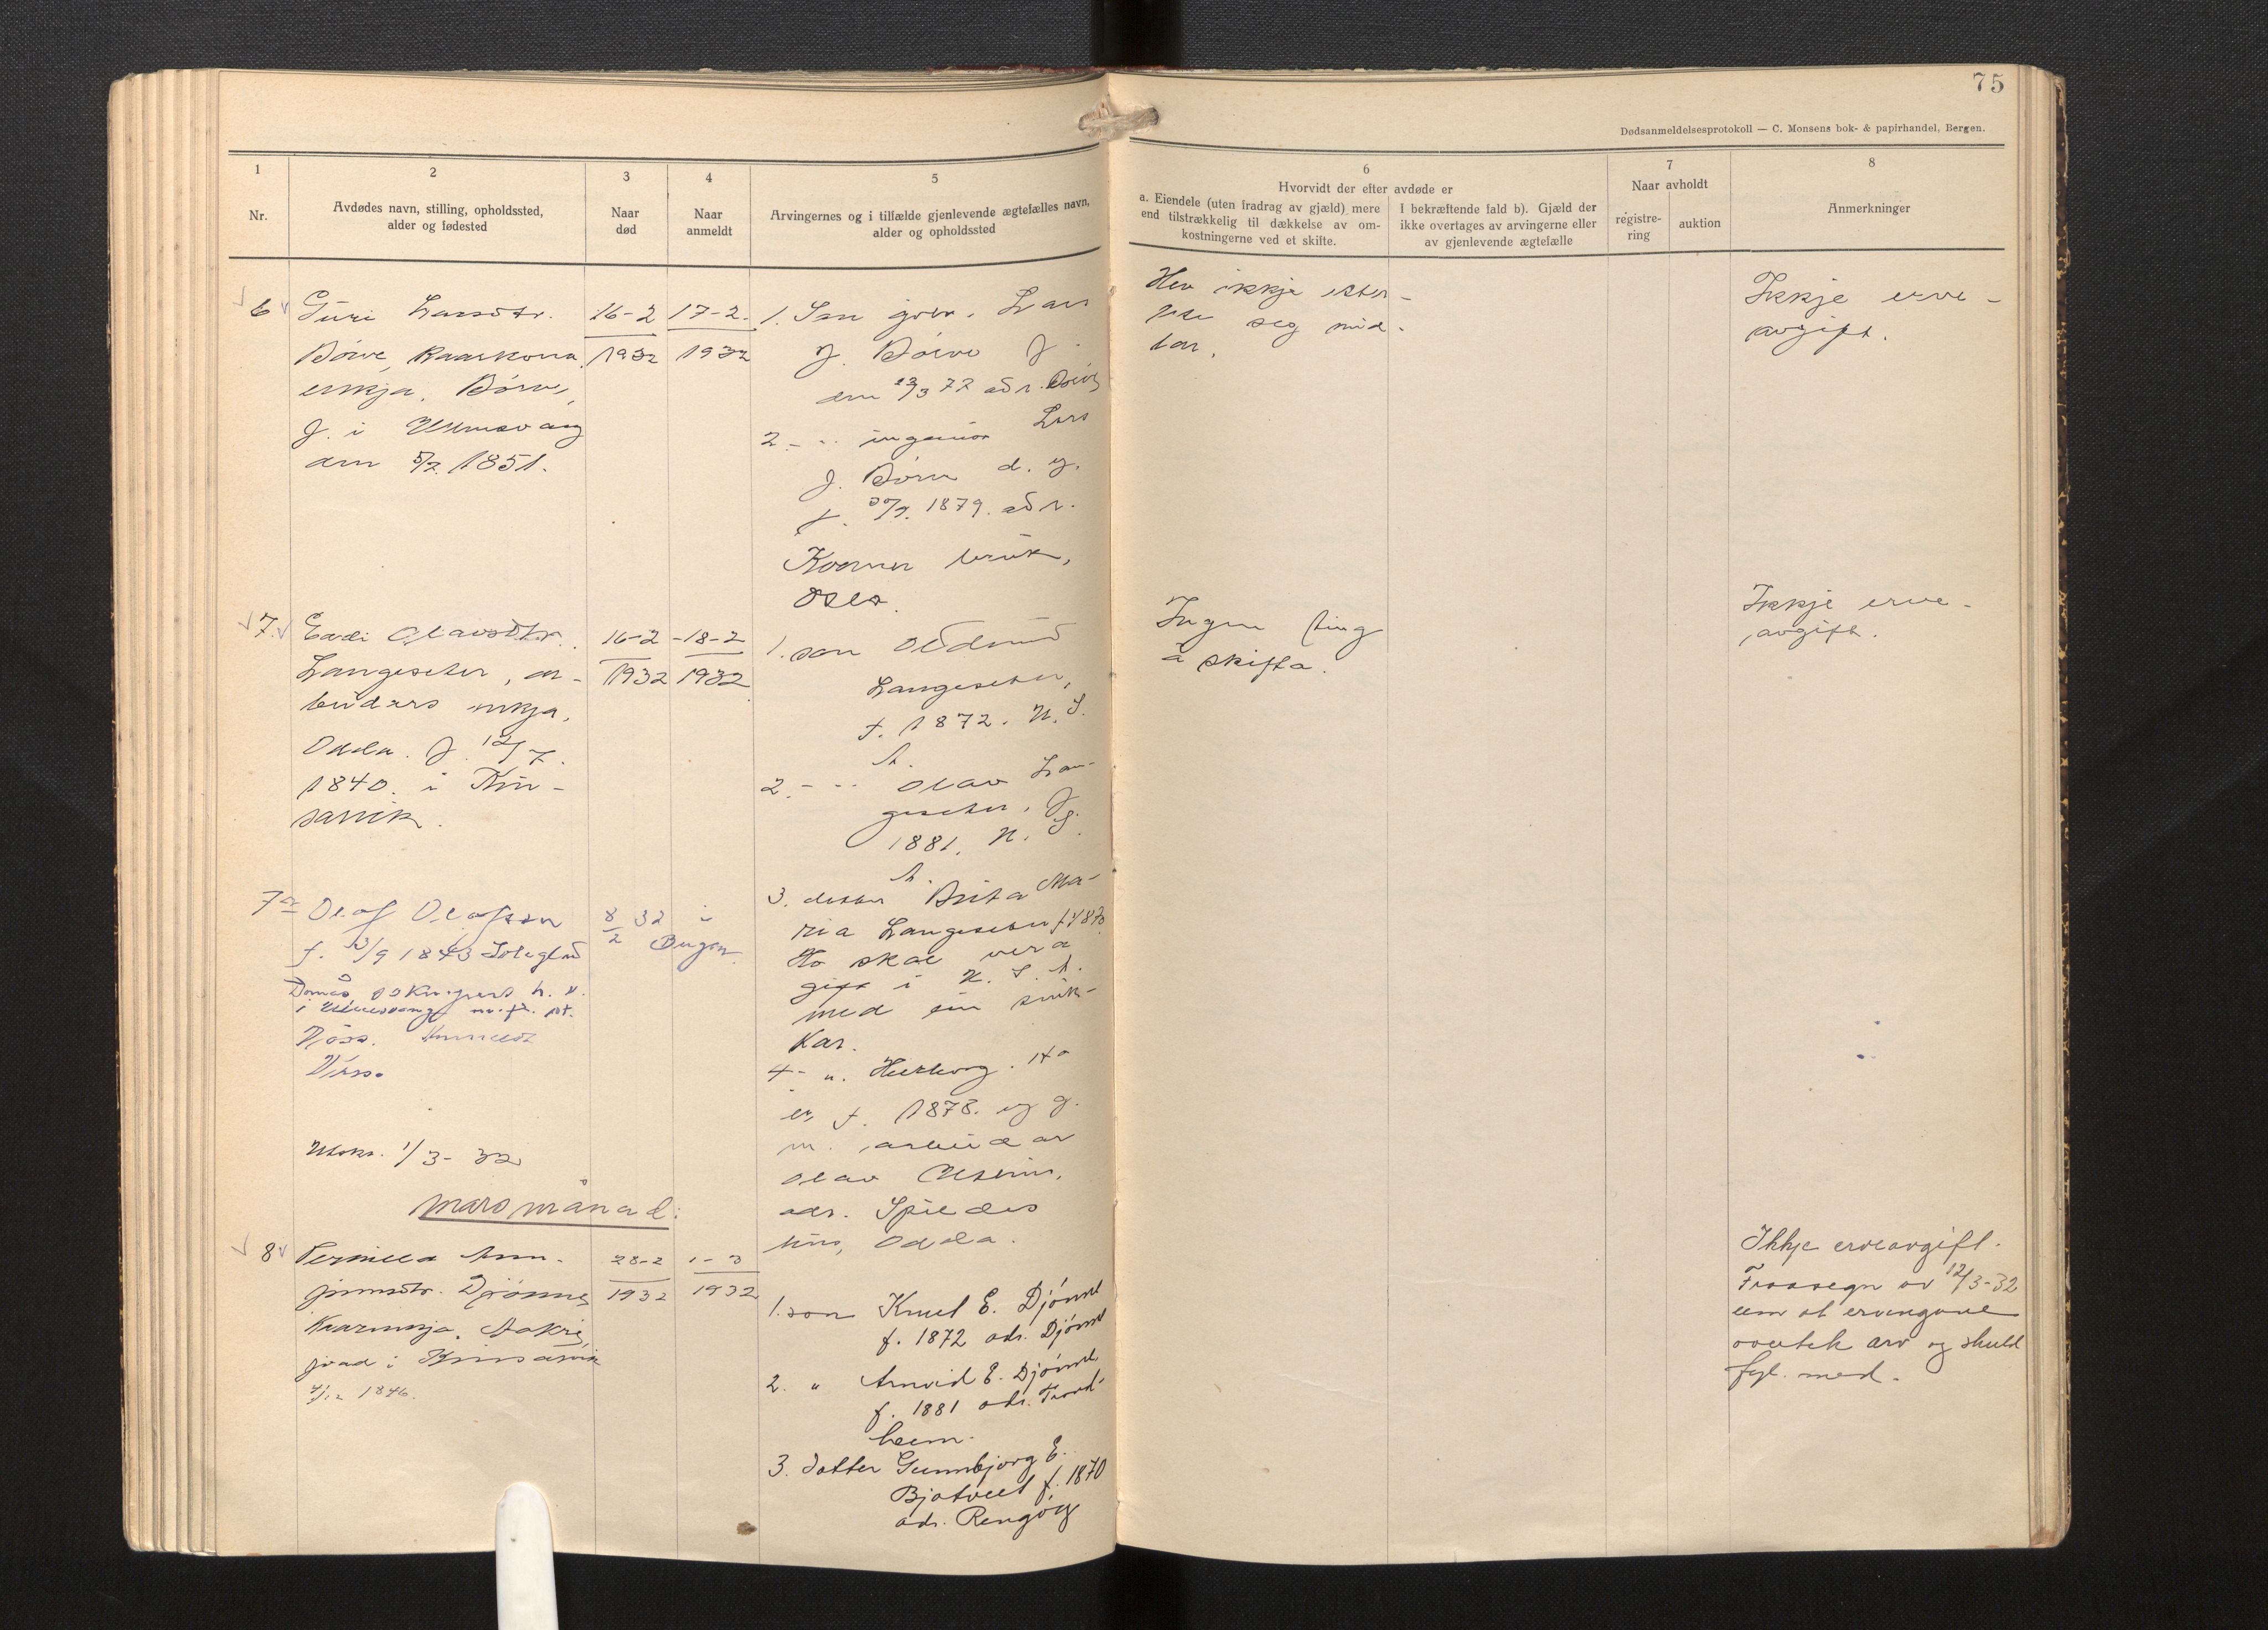 75
Dødsanmeldelsesprotokoll — C. Monsens bok- & papirhandel, Bergen.
1
Nr.
2
Avdødes navn, stilling, opholdssted,
alder og fødested
3
Naar
død
4
Naar
anmeldt
5
Arvingernes og i tilfælde gjenlevende ægtefælles navn,
alder og opholdssted
6
Hvorvidt der efter avdøde er
a. Eiendele (uten fradrag av gjæld) mere
end tilstrækkelig til dækkelse av om-
kostningerne ved et skifte.
I bekræftende fald b). Gjæld der
ikke overtages av arvingerne eller
av gjenlevende ægtefælle
7
Naar avholdt
registre-
ring
auktion
8
Anmerkninger
6
Guri Larsdtr.
Børve, Kaarkona
enkja, Børve,
f. i Ullensvang
den 5/2 1851.
16-2
1932
17-2.
1932
1. Son gbr. Lars
J. Børve f.
den 23/3 72 adr. Børve
2. - " ingeniør Lars
J. Børve d. y.
f. 1879. adr.
Kværner bruk,
Oslo.
Hev ikkje etter-
seg mid-
lar.
Ikkje erve-
avgift.
7.
Eadi Olavsdtr.
Langeseter, ar-
beidars enkja,
Odda. f. 12/7.
1840. i Kin-
sarvik.
16-2
1932
-18-2
1932
1. son Oddmund
Langeseter,
f. 1872. U. S.
A.
2. - " Olav Lan-
geseter, f.
1881. U. S.
A.
3. dotter Brita Ma-
ria Langeseter f. 1870
Ho skal vera
gift i U. S. A.
med ein snik-
kar.
4- ". Herborg. Ho
er f. 1878. og g.
m. arbeidar
Olav
adr.
hus, Odda.
Ingen ting
å skifta.
Ikkje erve-
avgift.
7a
Olaf Olafsen
f. /9 1843
i Ullensvang
Voss.
Voss.
8/2 32
i
Bergen.
Utskr. 1/3- 32
mars månad:
8
Pernilla Arn-
finnsdtr. Djønne
Kaarenkja, Aakre,
fødd i Kinsarvik
4/12 1846.
28-2
1932
1-3
1932
1. son Knut E. Djønne
f. 1872 adr. Djønne
2. " Arnvid E. Djønne
f. 1881 adr. Trond-
heim.
3. dotter Gunnbjørg E.
Bjotveit f. 1870
adr. Ringøy
Ikkje erveavgift.
Fråsegn av 12/3-32
um at ervingane
overtek arv og skuld
fyl. med.